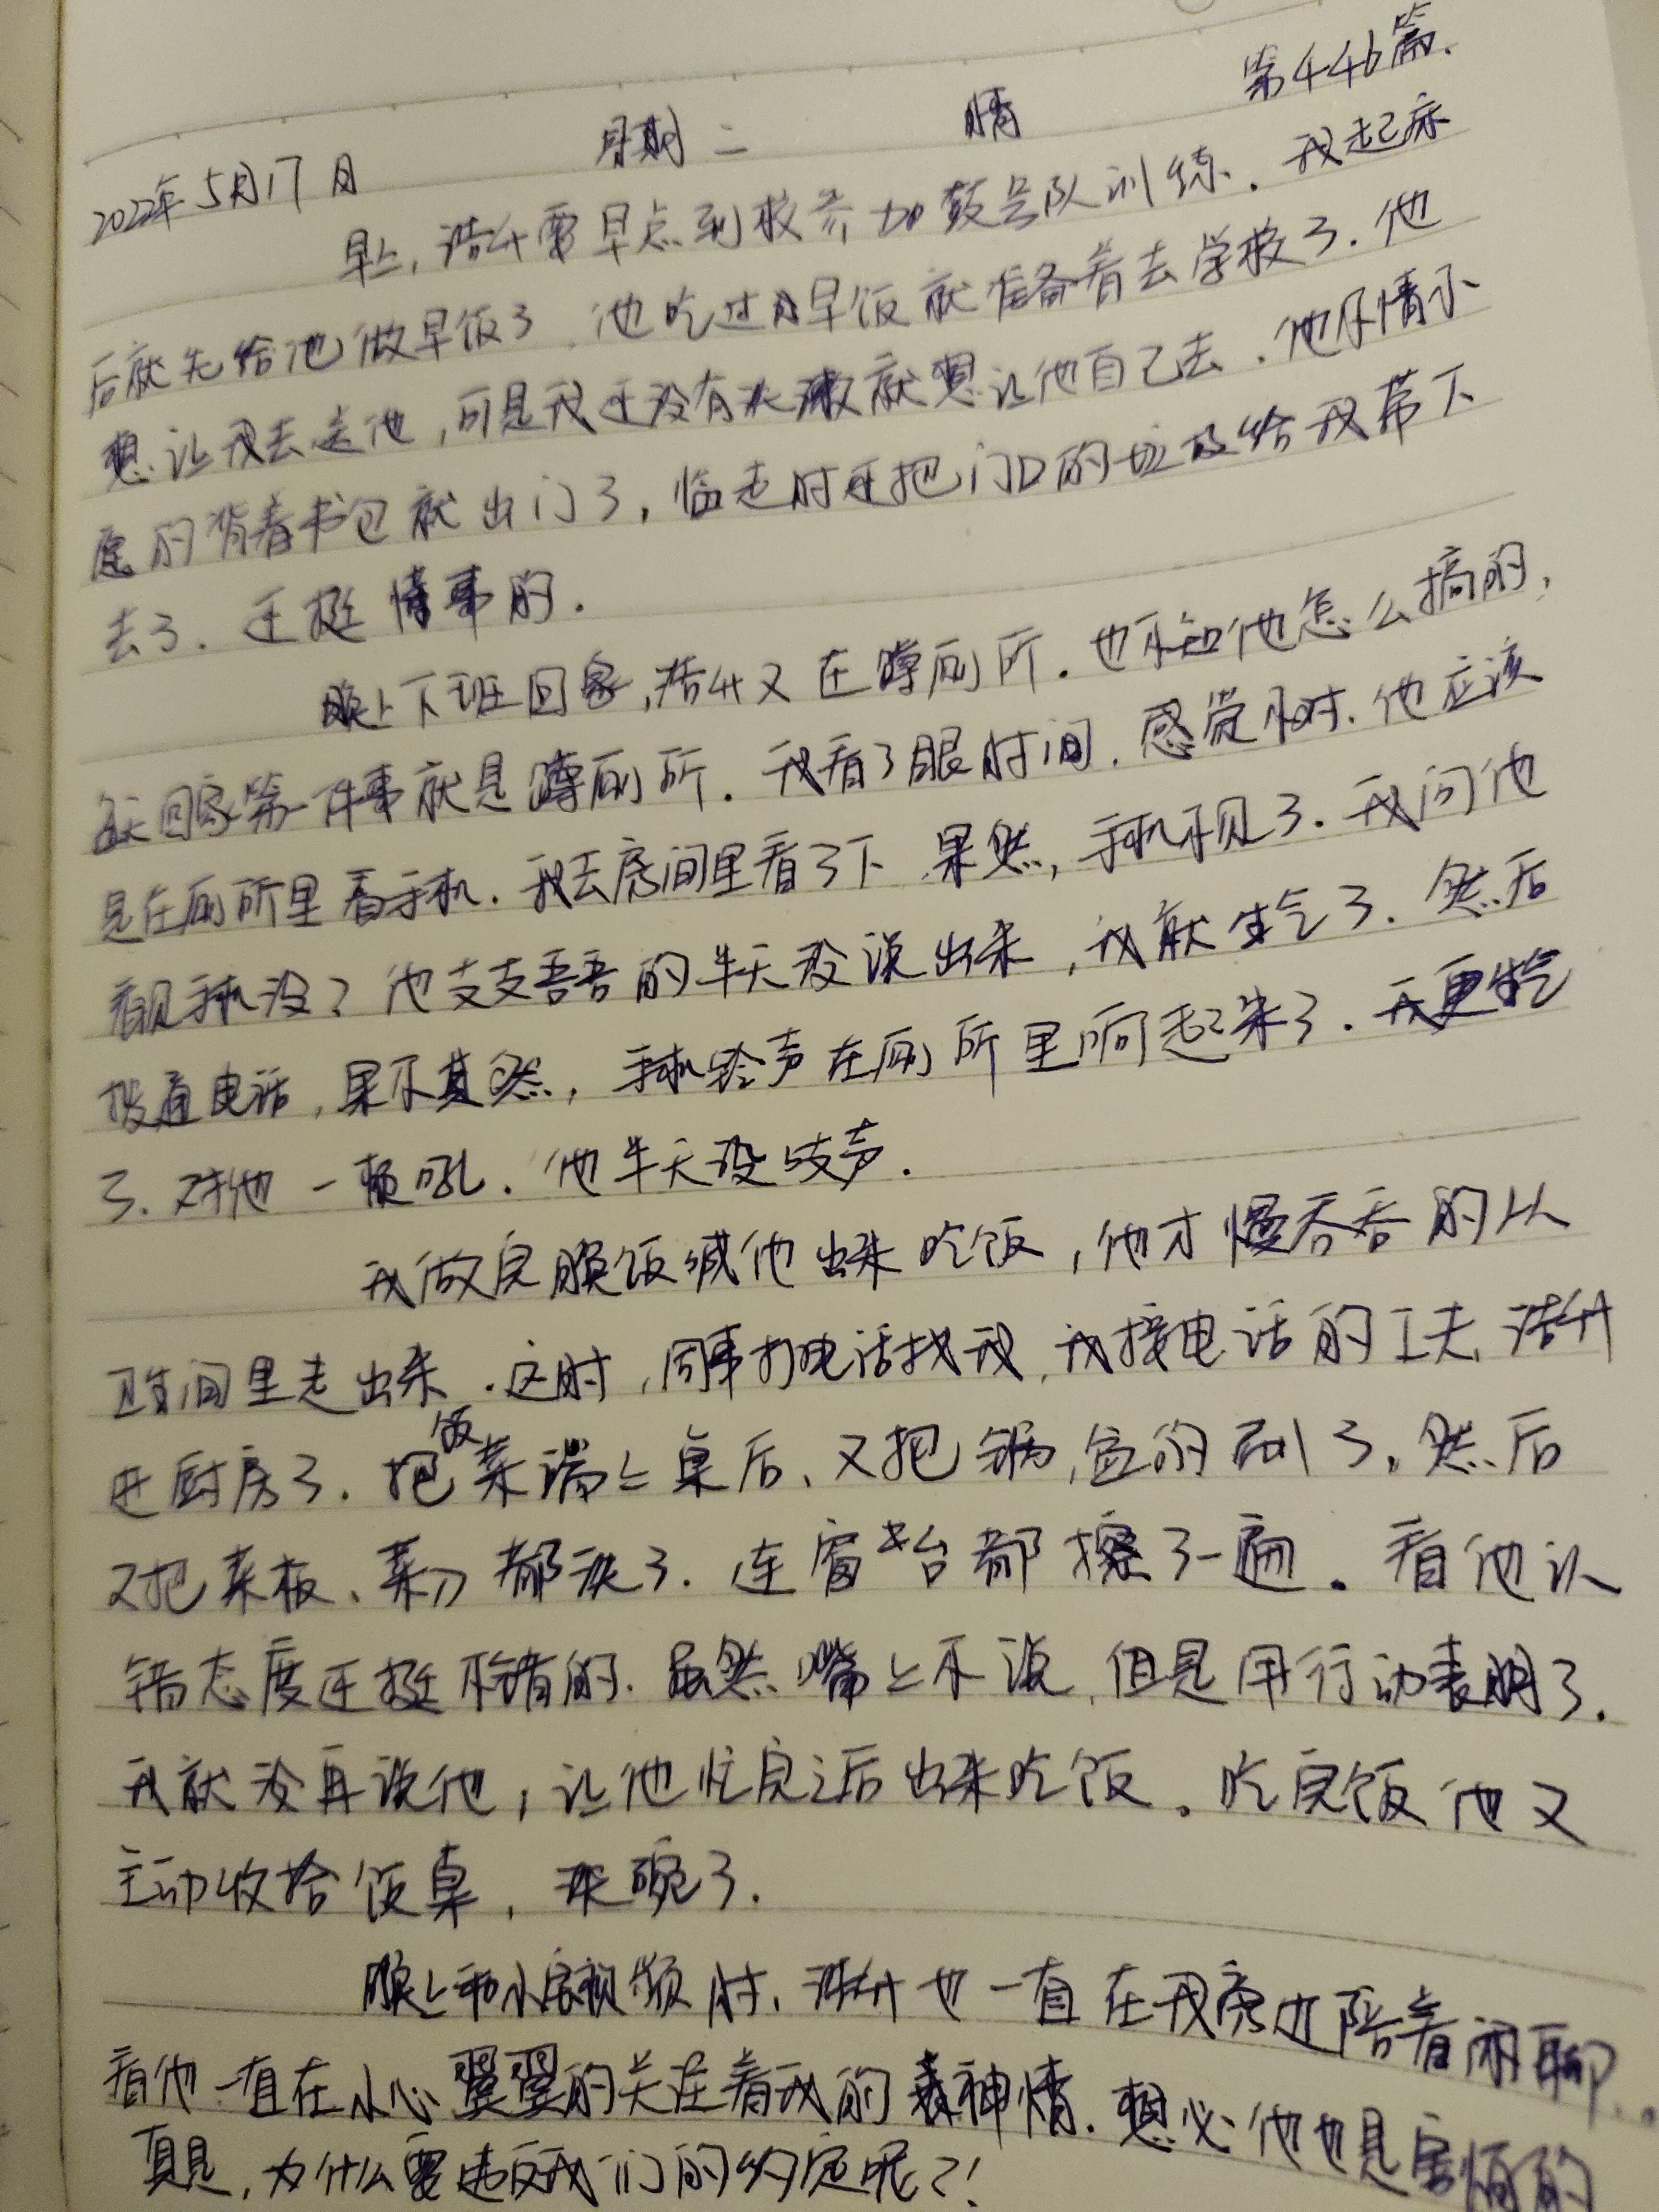 第446篇.
2022年5月17日 星期二 晴
早上,浩升需早点到校参加鼓号队训练.我起床
后就先给他做早饭了.他吃过早饭就准备着去学校了.他
想让我去送他,可是我还没有洗漱就想让他自己去.他不情不
愿的背着书包就出门了,临走时还把门口的垃圾给我带下
去了.还挺懂事的.
晚上下班回家,浩升又在蹲厕所.也不知他怎么搞的,
每天回家第一件事就是蹲厕所.我看了眼时间,感觉不对.他应该
是在厕所里看手机.我去房间里看了下,果然,手机不见了.我问他
看见手机没?他支支吾吾的半天没说出来,我就生气了.然后
拨通电话,果不其然,手机铃声在厕所里响起来了.我更生气
了.对他一顿吼.他半天没吱声.
我做完晚饭喊他出来吃饭,他才慢吞吞的从
卫生间里走出来.这时,同事打电话找我,我接电话的工夫,浩升
进厨房了.把饭菜端上桌后,又把锅,盆的刷了,然后
又把菜板、菜刀都洗了.连窗台都擦了一遍.看他认
错态度还挺不错的.虽然嘴上不说,但是用行动表明了.
我就没再说他,让他忙完之后出来吃饭.吃完饭他又
主动收拾饭桌,洗碗了.
晚上和小宝视频时,浩升也一直在我旁边陪着闲聊.
看他一直在小心翼翼的关注着我的神情.想必他也是害怕的
真是,为什么要违反我们的约定呢?!